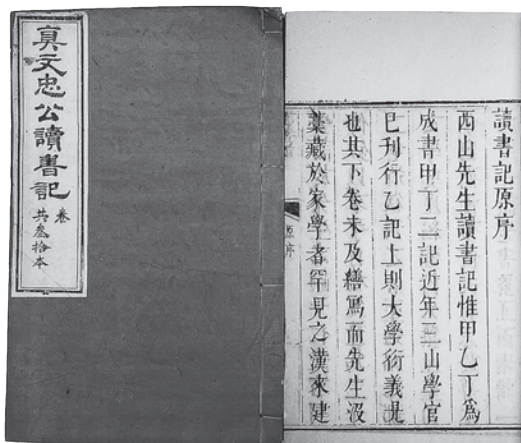 真文忠公讀書記
卷
共叁拾本
讀書記原序
西山先生讀書記惟甲乙丁為
成書甲丁二記近年三山學官
已刊行乙記上則大學衍義是
也其下卷未及繕寫而先生沒
藁藏於家學者罕見之漢來建
原序